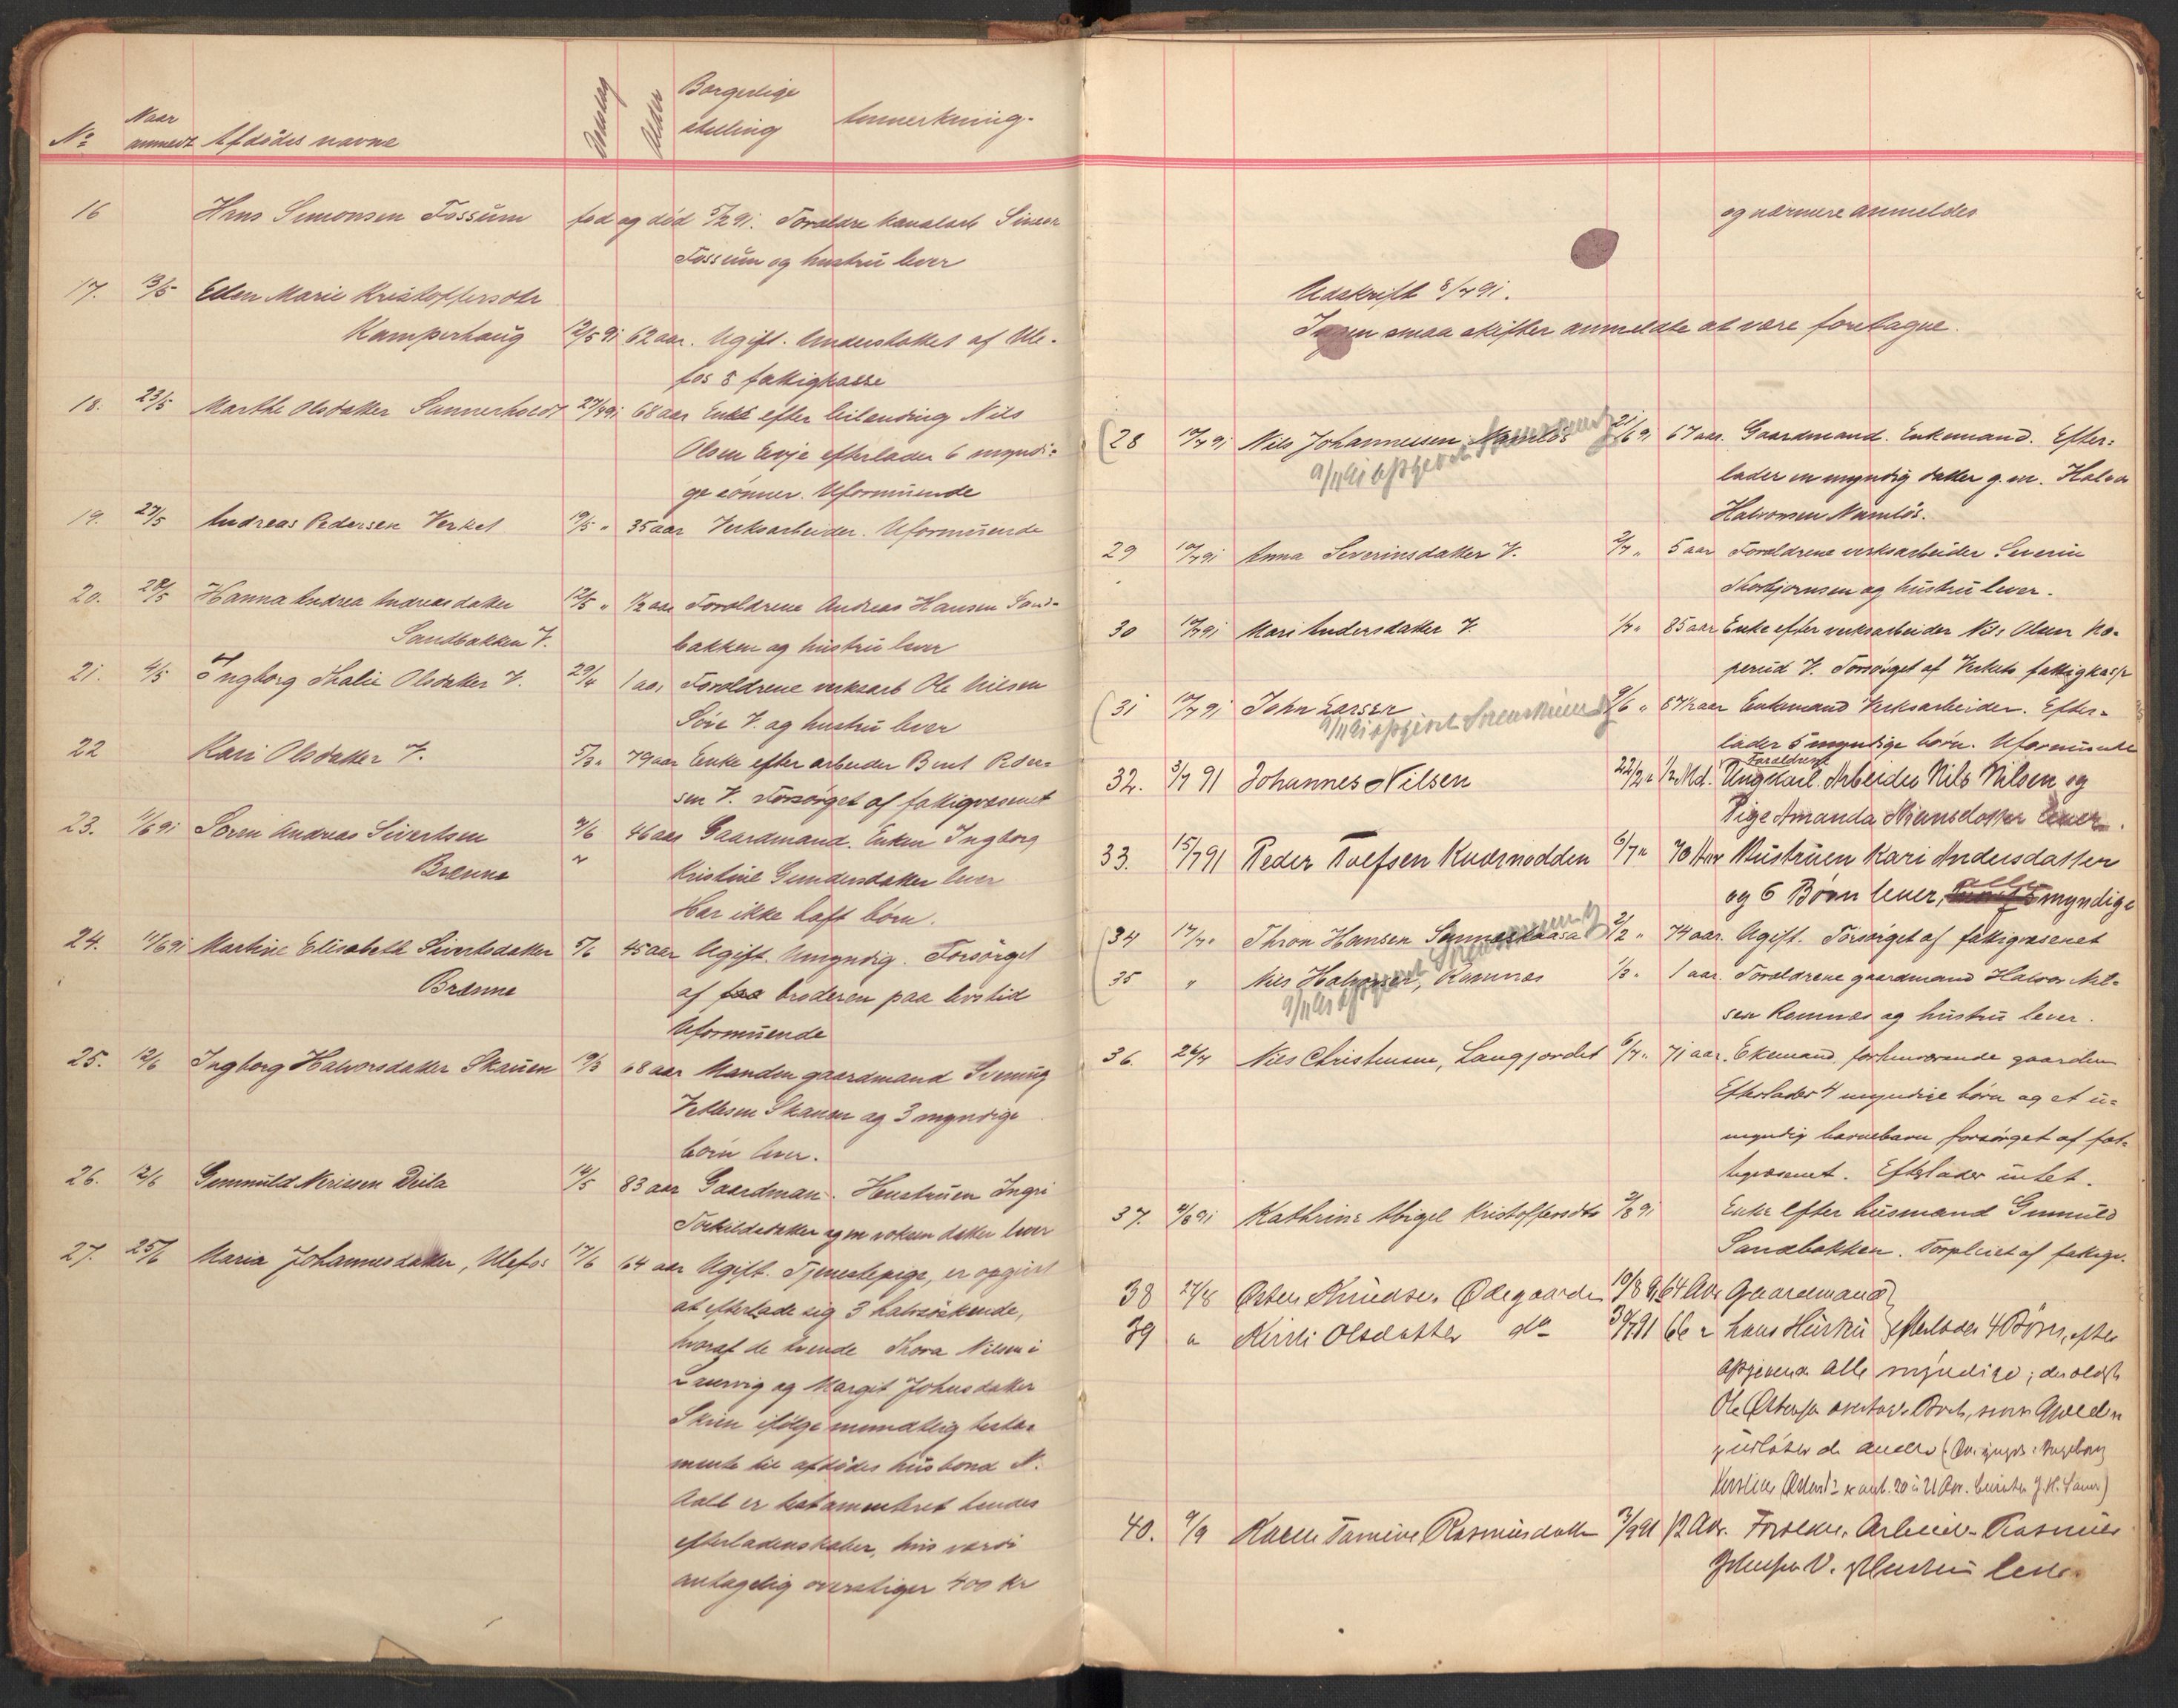 No Naar anmeldt Afdødes navne Dødsdag Alder Borgerlige stilling Anmerkning.
16 Hans Simonsen Fossum fød og død 5/2 91. Forældre kanalarb Simon
Fossum og hustru lever
17. 13/5 Ellen Marie Kristoffersdtr
Kamperhaug 12/5 91 62 aar. Ugift. Understøttet af Ule-
fos s fattigkasse
18. 23/5 Marthe Olsdatter Sannerholdt 27/4 91 68 aar Enke efter leilending Nils
Olsen Eeje efterlader 6 myndi-
ge sønner. Uformuende
19. 27/5 Andreas Pedersen Verket 19/5 " 35 aar Verksarbeider. Uformuende
20. 28/5 Hanna Andrea Andreasdatter 12/5 " 1/2 aar Forældrene Andreas Hansen Sand-
Sandbakken V. bakken og hustru lever
21. 4/5 Ingborg Thalie Olsdatter V. 29/4 1 aar Forældrene verksarb Ole Nilsen
V. og hustru lever
22 Kari Olsdatter V. 5/3 " 79 aar Enke efter arbeider Bent Peder-
sen V. Forsørget af fattigvæsenet
23. 11/6 91 Søren Andreas Sivertsen 4/6 46 aar Gaardmand. Enken Ingborg
Brenna " Kristine Gundersdatter lever
Har ikke haft børn.
24. 11/6 91 Martine Elisabeth Sivertsdatter 5/6 45 aar Ugift. Umyndig. Forsørget
Brenna af faa broderen paa livstid
Uformuende
25. 12/6 Ingborg Halvorsdatter Skauen 19/3 68 aar Manden gaardmand Svenung
Vetlesen Skauen og 3 myndige
børn lever.
26. 12/6 Gunnuld Nerisen Deila 14/5 83 aar Gaardman. Hustruen Ingri
Torkildsdatter og en voksen datter lever
27. 25/6 Maria Johannesdatter, Ulefos 17/6 64 aar Ugift. Tjenestepige, er opgivet
at efterlade sig 3 halvsøskende,
hvoraf de tvende Thora Nilsen i
Laurvig og Margit Johnsdatter
Skien ifølge mundtlig testa-
mente til afdødes husbond N.
Aall er testamenteret hendes
efterladenskaber, hvis værdi
antagelig overstiger 400 kr
og nærmere anmeldes
Udskrift 8/7 91.
Ingen smaa skifter anmeldte at være foretagne.
28 10/7 91 Nils Johannessen Namløs 21/6 91 67 aar. Gaardmand. Enkemand. Efter-
9/11 91 opgivet
lader en myndig datter g. m. Halvor
Halvorsen Namløs.
29 10/7 91 Anna Severinsdatter V. 2/7 " 5 aar Forældrene verksarbeider Severin
Thorbjørnsen og hustru lever.
30 10/7 91 Mari Andersdatter V. 1/7 " 85 aar Enke efter verksarbeider Nils Olsen Ko-
perud V. Forsørget af Verkets fattigkasse
31 10/7 91 John Larsen 9/6 " 67 1/2 aar Enkemand Verksarbeider. Efter-
9/11 91 opgivet
lader 5 myndige børn. Uformuende
32. 3/7 91 Johannes Nilsen 22/2 " 1/2 Md. Forældrene Ungkarl Arbeider Nils Nilsen og
Pige Amanda lever.
33. 15/7 91 Peder Tolfsen Kværnodden 6/7 " 70 Aar Hustruen Kari Andersdatter
og 6 Børn lever, alle myndige
34 17/7 " Thron Hansen Sannerkaasa 2/2 " 74 aar. Ugift. Forsørget af fattigvæsenet
35 " Nils Halvorsen, Romnes 1/3 " 1 aar. Forældrene gaardmand Halvor Nil-
9/11 91 opgivet
sen Romnes og hustru lever.
36. 26/7 Nils Christensen, Langjordet 6/7 " 71 aar. Ekemand forhenværende gaardm
Efterlader 4 myndige børn og et u-
myndig barnebarn forsørget af fat-
tigvæsenet. Efterlader intet.
37. 4/8 91 Kathrine Abigel Kristoffersdtr 3/8 91 Enke efter husmand Gunnuld
Sandbakken. Forpleiet af fattigv.
38 24/8 Østen Knudsen Ødegaarden 10/8 91 64 Aar Gaardmand
39 " Kirsti Olsdatter do 30/7 91 66 " hans Hustru efterlader 4 Børn, efter
opgivende alle myndige; den eldste
Ole Østensen overtager Boets, Gjæld
udløser de andre
40. 9/9 Karen Tomine Rasmusdatter 3/9 91 12 Aar. Forældre, Arbeider Rasmus
V. og Hustru lever